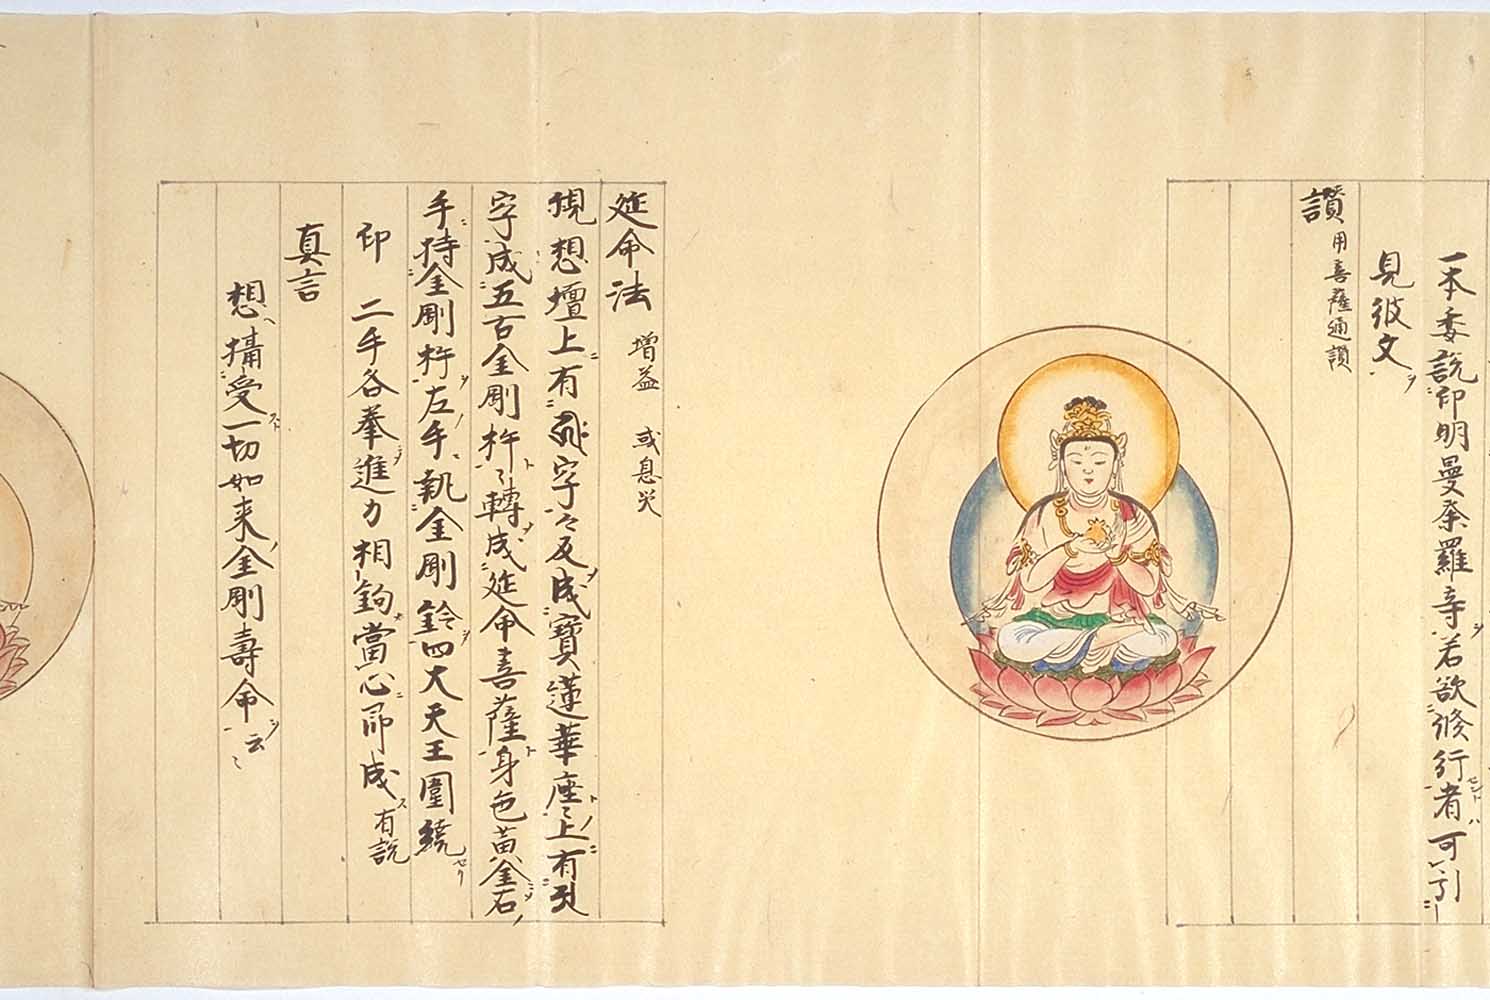 一本委説印明曼荼羅寺若欲修行者可引
見彼文
讃 用菩薩通讃
延命法 増益 或息災
現想壇上有字々反成寶蓮華座々上有
字成五百金剛杵々轉成延命菩薩身色黄金右
手持金剛杵左手執金剛鈴四大天王圍繞
印 二手各拳進力相鉤當心即成 有説
真言
想攝受一切如来金剛壽命云々